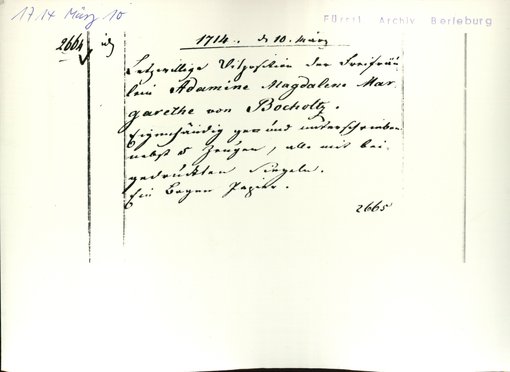 1714 März 10
Fürstl. Archiv Berleburg
2664
1714. d 10. März
Letzwillige Disposition der Freifräu
lein Adamine Magdalene Mar
garethe von Bocholtz.
Eigenhändig ge= und unterschrieben
nebst 5 Zeugen, alle mit bei
gedruckten Siegeln.
Ein Bogen Papier.
2665